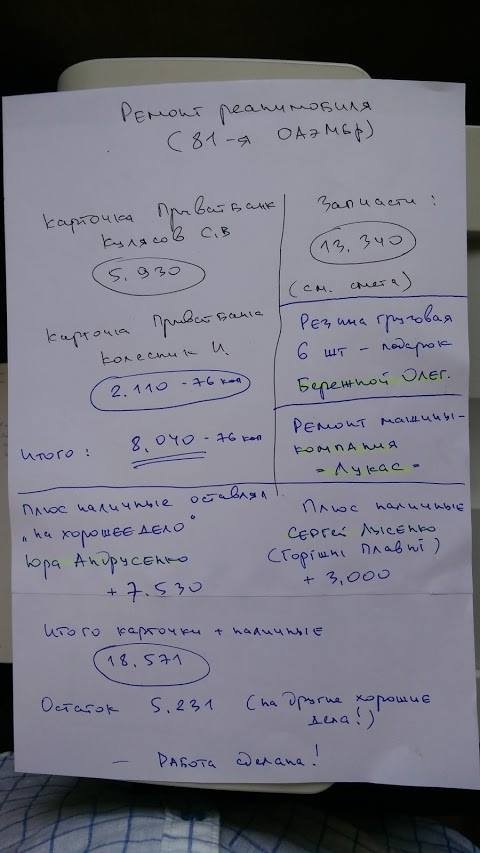 Ремонт реанимобиля
(81-я ОАЭМбр)
Карточка Приватбанк
Кулясов С.В
5.930
Карточка Приватбанка
Колесник И.
2.110 - 76 коп
Итого: 8,040 - 76 коп
Запчасти:
13.340
(см. смета)
Резина грузовая
6 шт - подарок
Бережной Олег.
Ремонт машины -
компания
"Лукас"
Плюс наличные оставлял
"на хорошее дело"
Юра Андрусенко
+ 7.530
Плюс наличные
Сергей Лысенко
(Горішні Плавні)
+ 3,000
Итого карточки + наличные
18,571
Остаток 5.231 (на другие хорошие
дела!)
- Работа сделана!